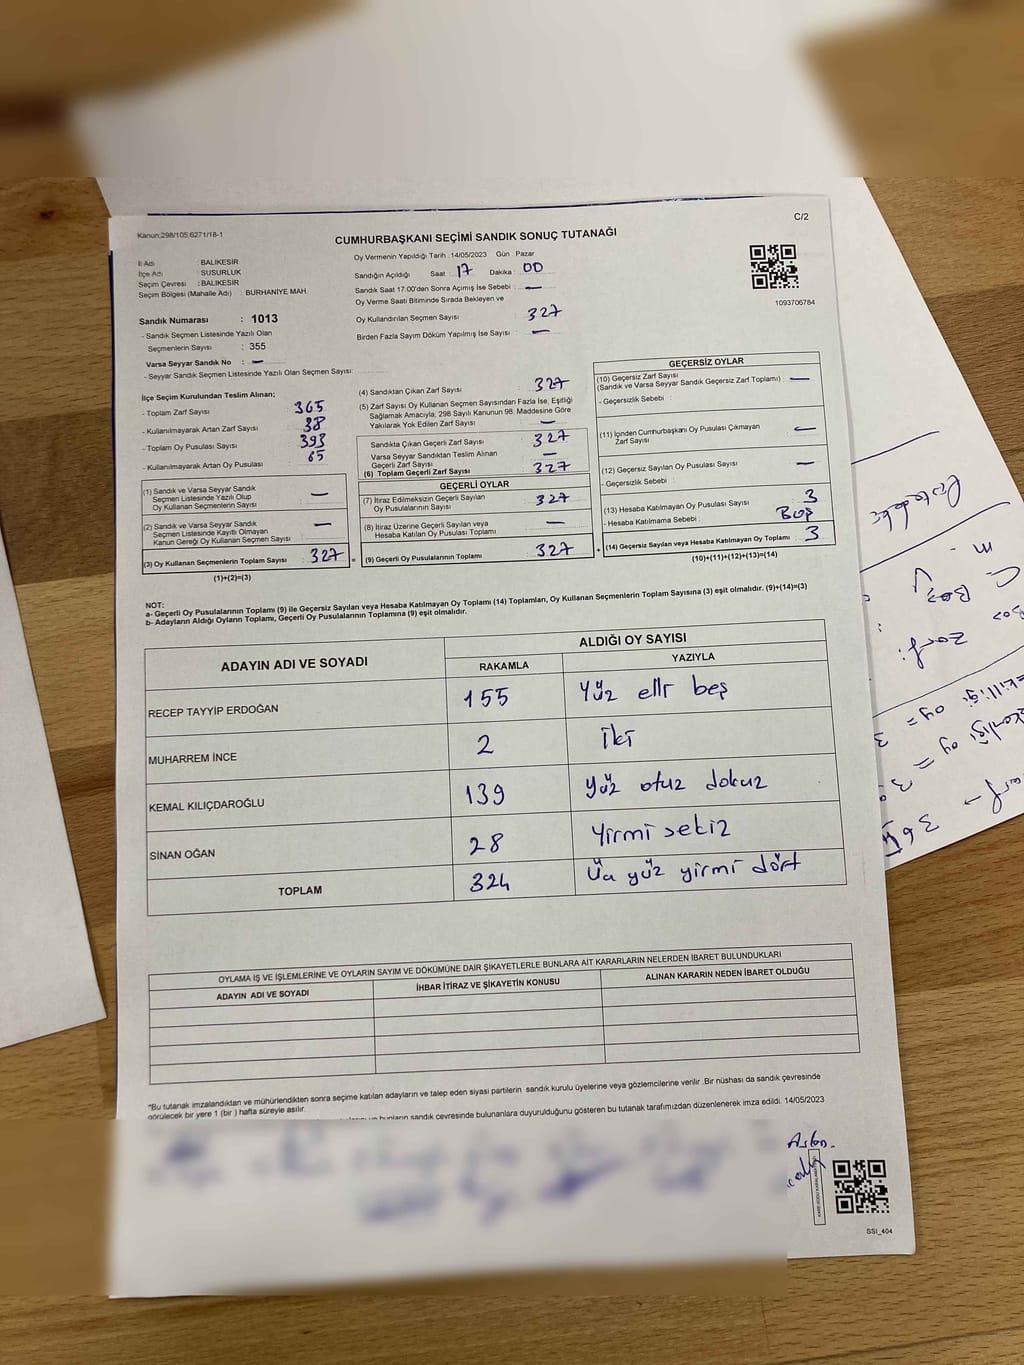 Kanun:298/105;6271/18-1
C/2
CUMHURBAŞKANI SEÇİMİ SANDIK SONUÇ TUTANAĞI
İl Adı : BALIKESİR
İlçe Adı : SUSURLUK
Seçim Çevresi : BALIKESİR
Seçim Bölgesi (Mahalle Adı) : BURHANİYE MAH.
Sandık Numarası : 1013
- Sandık Seçmen Listesinde Yazılı Olan
Seçmenlerin Sayısı : 355
Varsa Seyyar Sandık No : —
- Seyyar Sandık Seçmen Listesinde Yazılı Olan Seçmen Sayısı:
Oy Vermenin Yapıldığı Tarih : 14/05/2023 Gün : Pazar
Sandığın Açıldığı Saat : 17 Dakika : 00
Sandık Saat 17:00'den Sonra Açımış İse Sebebi : —
Oy Verme Saati Bitiminde Sırada Bekleyen ve
Oy Kullandırılan Seçmen Sayısı : 327
Birden Fazla Sayım Döküm Yapılmış İse Sayısı : —
1093706784
İlçe Seçim Kurulundan Teslim Alınan;
- Toplam Zarf Sayısı : 365
- Kullanılmayarak Artan Zarf Sayısı : 38
- Toplam Oy Pusulası Sayısı : 393
- Kullanılmayarak Artan Oy Pusulası : 65
(1) Sandık ve Varsa Seyyar Sandık
Seçmen Listesinde Yazılı Olup
Oy Kullanan Seçmenlerin Sayısı —
(2) Sandık ve Varsa Seyyar Sandık
Seçmen Listesinde Kayıtlı Olmayan
Kanun Gereği Oy Kullanan Seçmen Sayısı —
(3) Oy Kullanan Seçmenlerin Toplam Sayısı 327 =
(1)+(2)=(3)
(4) Sandıktan Çıkan Zarf Sayısı : 327
(5) Zarf Sayısı Oy Kullanan Seçmen Sayısından Fazla İse, Eşitliği
Sağlamak Amacıyla, 298 Sayılı Kanunun 98. Maddesine Göre
Yakılarak Yok Edilen Zarf Sayısı : —
Sandıkta Çıkan Geçerli Zarf Sayısı : 327
Varsa Seyyar Sandıktan Teslim Alınan
Geçerli Zarf Sayısı : —
(6) Toplam Geçerli Zarf Sayısı : 327
GEÇERLİ OYLAR
(7) İtiraz Edilmeksizin Geçerli Sayılan
Oy Pusulalarının Sayısı : 327
(8) İtiraz Üzerine Geçerli Sayılan veya
Hesaba Katılan Oy Pusulası Toplamı : —
(9) Geçerli Oy Pusulalarının Toplamı 327 +
GEÇERSİZ OYLAR
(10) Geçersiz Zarf Sayısı
(Sandık ve Varsa Seyyar Sandık Geçersiz Zarf Toplamı) : —
- Geçersizlik Sebebi :
(11) İçinden Cumhurbaşkanı Oy Pusulası Çıkmayan
Zarf Sayısı : —
(12) Geçersiz Sayılan Oy Pusulası Sayısı : —
- Geçersizlik Sebebi :
(13) Hesaba Katılmayan Oy Pusulası Sayısı : 3
- Hesaba Katılmama Sebebi : BOŞ
(14) Geçersiz Sayılan veya Hesaba Katılmayan Oy Toplamı : 3
(10)+(11)+(12)+(13)=(14)
NOT:
a- Geçerli Oy Pusulalarının Toplamı (9) ile Geçersiz Sayılan veya Hesaba Katılmayan Oy Toplamı (14) Toplamları, Oy Kullanan Seçmenlerin Toplam Sayısına (3) eşit olmalıdır. (9)+(14)=(3)
b- Adayların Aldığı Oyların Toplamı, Geçerli Oy Pusulalarının Toplamına (9) eşit olmalıdır.
ADAYIN ADI VE SOYADI
ALDIĞI OY SAYISI
RAKAMLA
YAZIYLA
RECEP TAYYİP ERDOĞAN 155 Yüz elli beş
MUHARREM İNCE 2 iki
KEMAL KILIÇDAROĞLU 139 yüz otuz dokuz
SİNAN OĞAN 28 Yirmi sekiz
TOPLAM 324 Üç yüz yirmi dört
OYLAMA İŞ VE İŞLEMLERİNE VE OYLARIN SAYIM VE DÖKÜMÜNE DAİR ŞİKAYETLERLE BUNLARA AİT KARARLARIN NELERDEN İBARET BULUNDUKLARI
ADAYIN ADI VE SOYADI
İHBAR İTİRAZ VE ŞİKAYETİN KONUSU
ALINAN KARARIN NEDEN İBARET OLDUĞU
*Bu tutanak imzalandıktan ve mühürlendikten sonra seçime katılan adayların ve talep eden siyasi partilerin sandık kurulu üyelerine veya gözlemcilerine verilir .Bir nüshası da sandık çevresinde
görülecek bir yere 1 (bir ) hafta süreyle asılır.
bunların sandık çevresinde bulunanlara duyurulduğunu gösteren bu tutanak tarafımızdan düzenlenerek imza edildi. 14/05/2023
SSİ_404